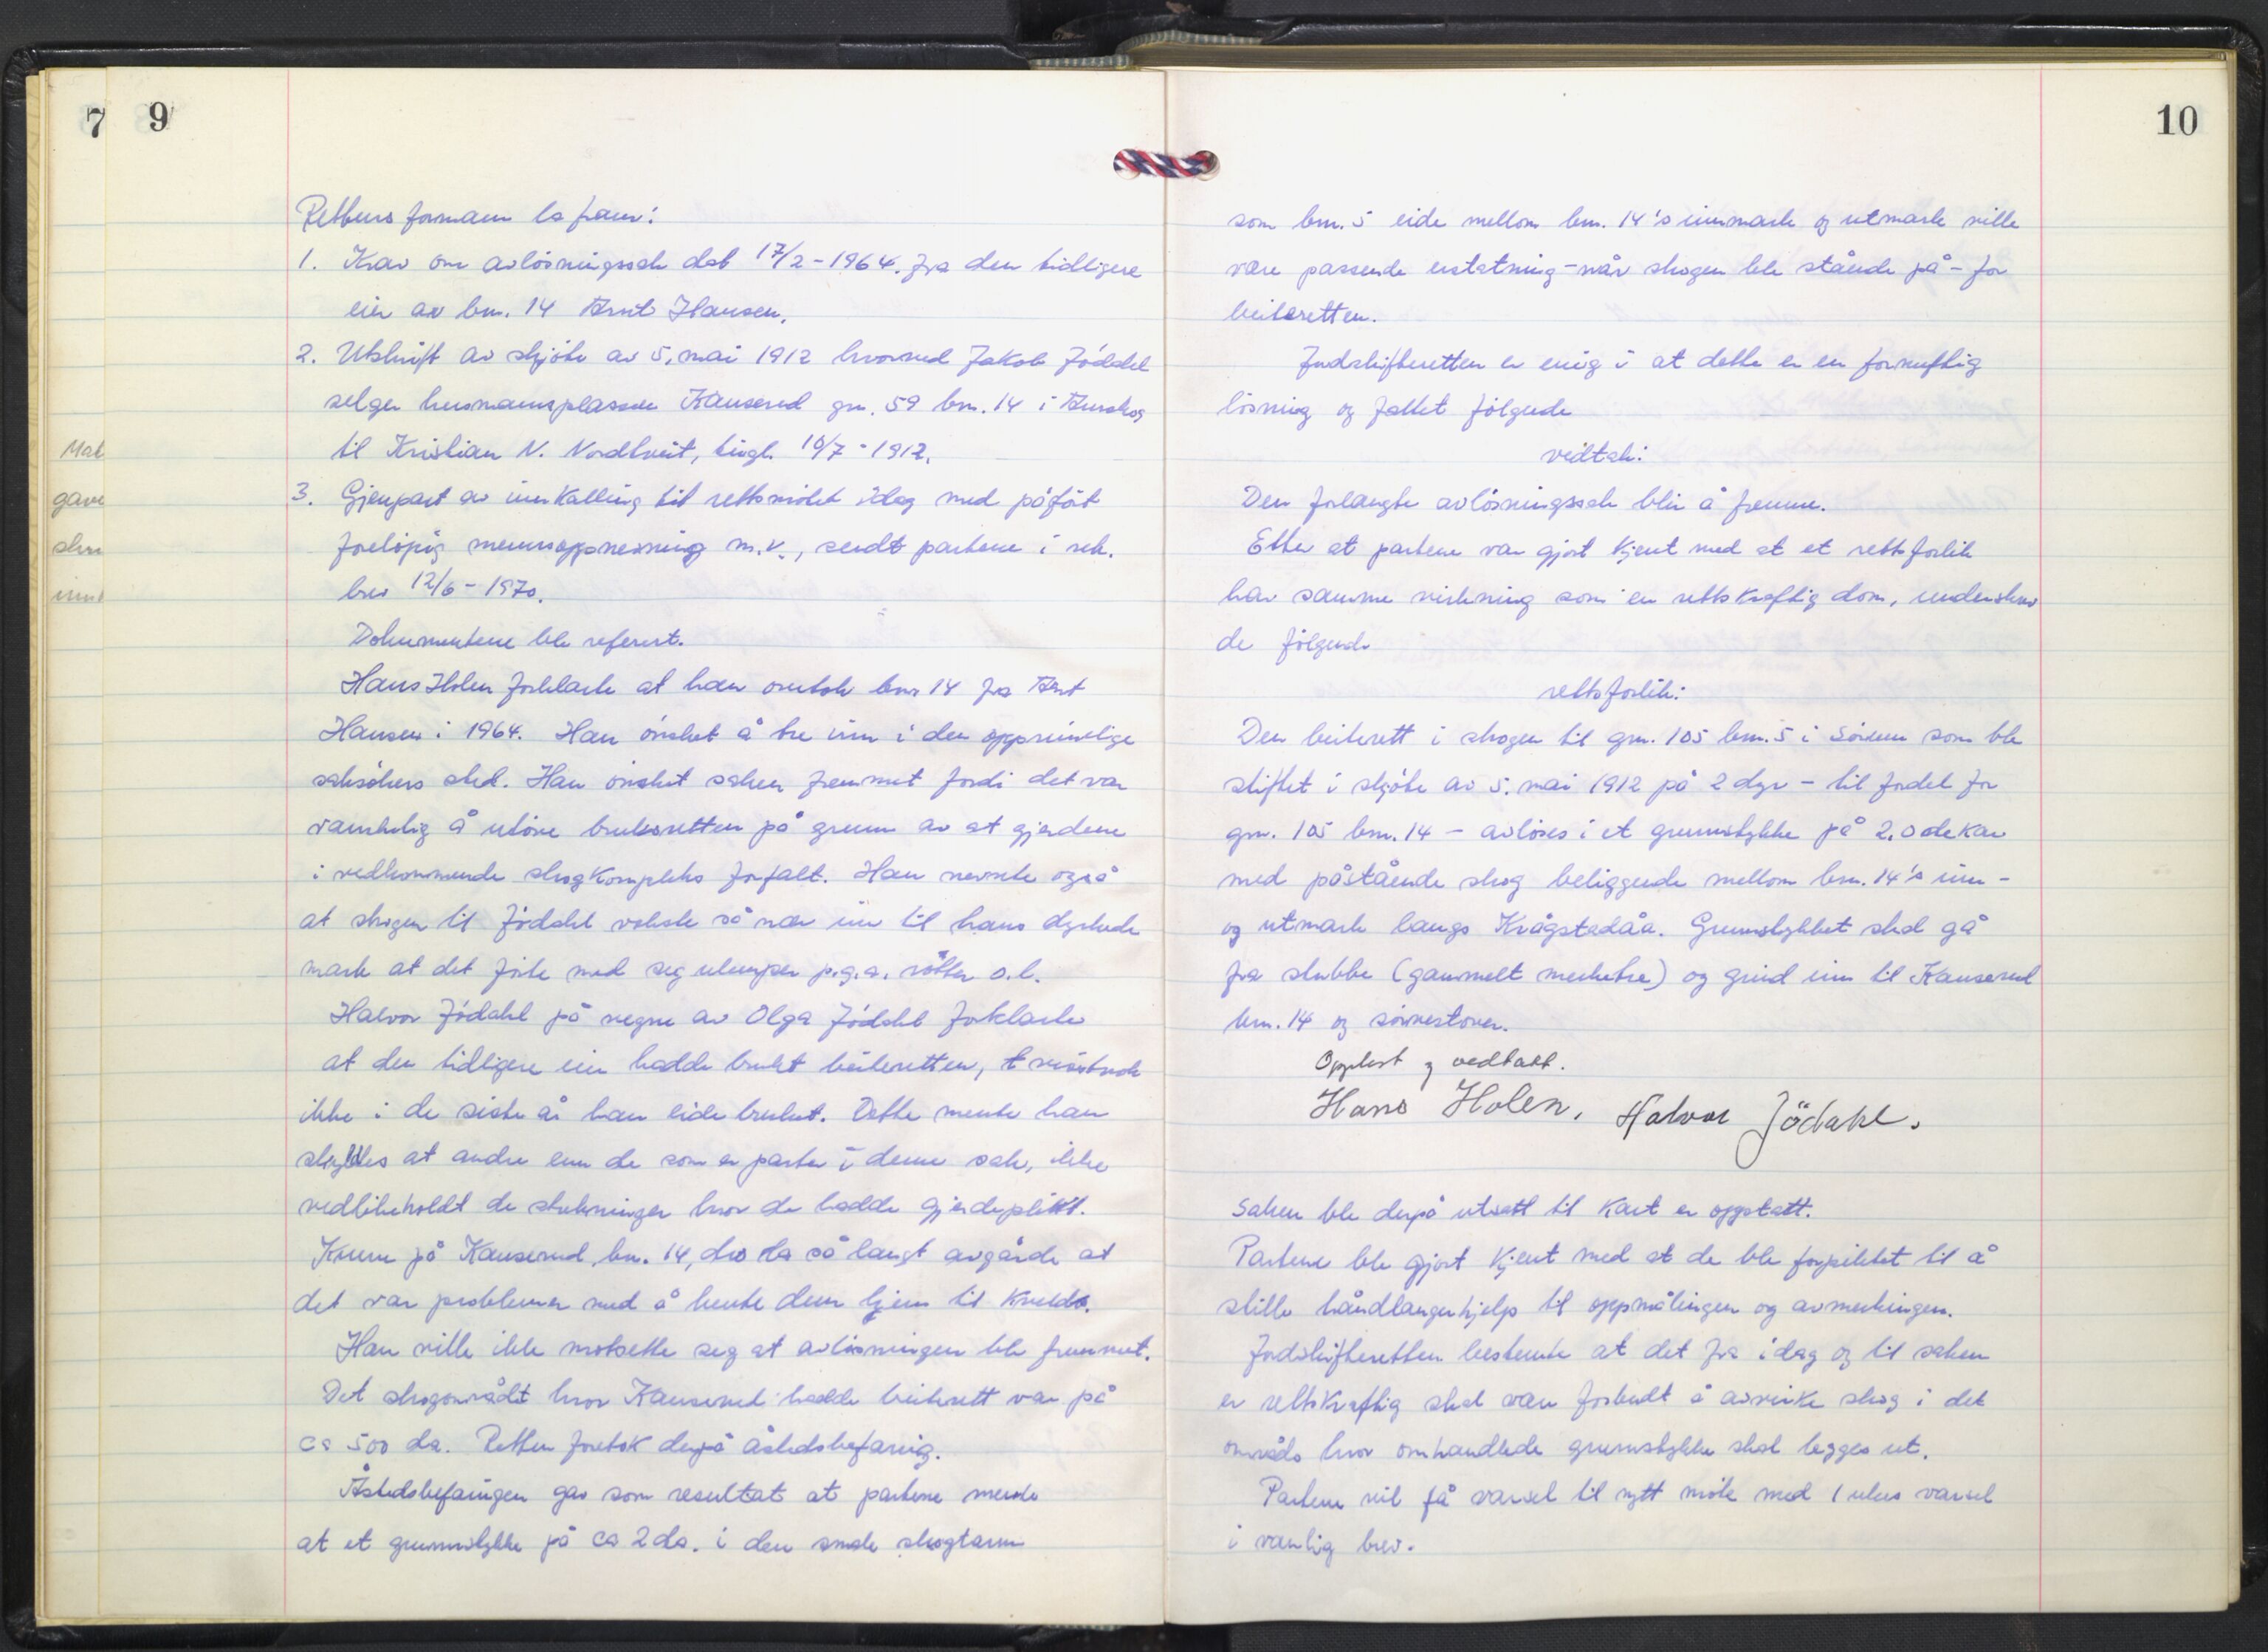 7
9
Mat
gave
Rettens formann la fram:
1. Krav om avløsningssak dat 17/2-1964. fra den tidligere
eier av bnr. 14 Arnt Hansen.
2. Utskrift av skjøte av 5. mai 1912 hvorved Jakob Jödahl
selger husmannsplassen Kauserud gnr. 59 bnr. 14 i Aurskog
til Kristian N. Nordtveit, tingl. 10/7-1912.
3. Gjenpart av innkalling til rettsmötet idag med påfört
forelöpig mennsoppnevning m.v., sendt partene i rek.
brev 12/6-1970.
Dokumentene ble referert.
Hans Holen forklarte at han overtok bnr 14 fra Arnt
Hansen i 1964. Han önsket å tre inn i den opprinnelige
saksökers sted. Han önsket saken fremmet fordi det var
vanskelig å utöve bruksretten på grunn av at gjerdene
i vedkommende skogkompleks forfalt. Han nevnte også
at skogen til Jödahl vokste så nær inn til hans dyrkede
mark at det förte med seg ulemper p.g.a. rötter o.l.
Halvor Jödahl på vegne av Olga Jödahl forklarte
at den tidligere eier hadde brukt beiteretten, riktignok
ikke i de siste år han eide bruket. Dette mente han
skyldtes at andre enn de som er parter i denne sak, ikke
vedlikeholdt de strekninger hvor de hadde gjerdeplikt.
Kuene på Kauserud, bnr. 14, dro da så langt avgårde at
det var problemer med å hente dem hjem til kvelds.
Han ville ikke motsette seg at avlösningen ble fremmet.
Det skogområdet hvor Kauserud hadde beiterett var på
ca 500 da. Retten foretok derpå åstedsbefaring.
Åstedsbefaringen gav som resultat at partene mente
at et grunnstykke på ca 2 da. i den smale skogtarm
10
som bnr. 5 eide mellom bnr. 14's innmark og utmark ville
være passende erstatning - når skogen ble stående på - for
beiteretten.
Jordskifteretten er enig i at dette er en fornuftig
lösning og fattet fölgende
vedtak:
Den forlangte avlösningssak blir å fremme.
Etter at partene var gjort kjent med at et rettsforlik
har samme virkning som en rettskraftig dom, underskrev
de fölgende
rettsforlik:
Den beiterett i skogen til gnr. 105 bnr. 5 i Sörum som ble
stiftet i skjöte av 5. mai 1912 på 2 dyr - til fordel for
gnr. 105 bnr. 14 - avlöses i et grunnstykke på 2.0 dekar
med påstående skog beliggende mellom bnr. 14's inn-
og utmark langs Krågstadåa. Grunnstykket skal gå
fra stubbe (gammelt merketre) og grind inn til Kauserud
bnr. 14 og sörvestover.
Opplest og vedtatt.
Hans Holen. Halvor Jödahl.
Saken ble derpå utsatt til kart er opptatt.
Partene ble gjort kjent med at de ble forpliktet til å
stille håndlangerhjelp til oppmålingen og avmerkingen.
Jordskifteretten bestemte at det fra idag og til saken
er rettskraftig skal være forbudt å avvirke skog i det
område hvor omhandlede grunnstykke skal legges ut.
Partene vil få varsel til nytt möte med 1 ukes varsel
i vanlig brev.